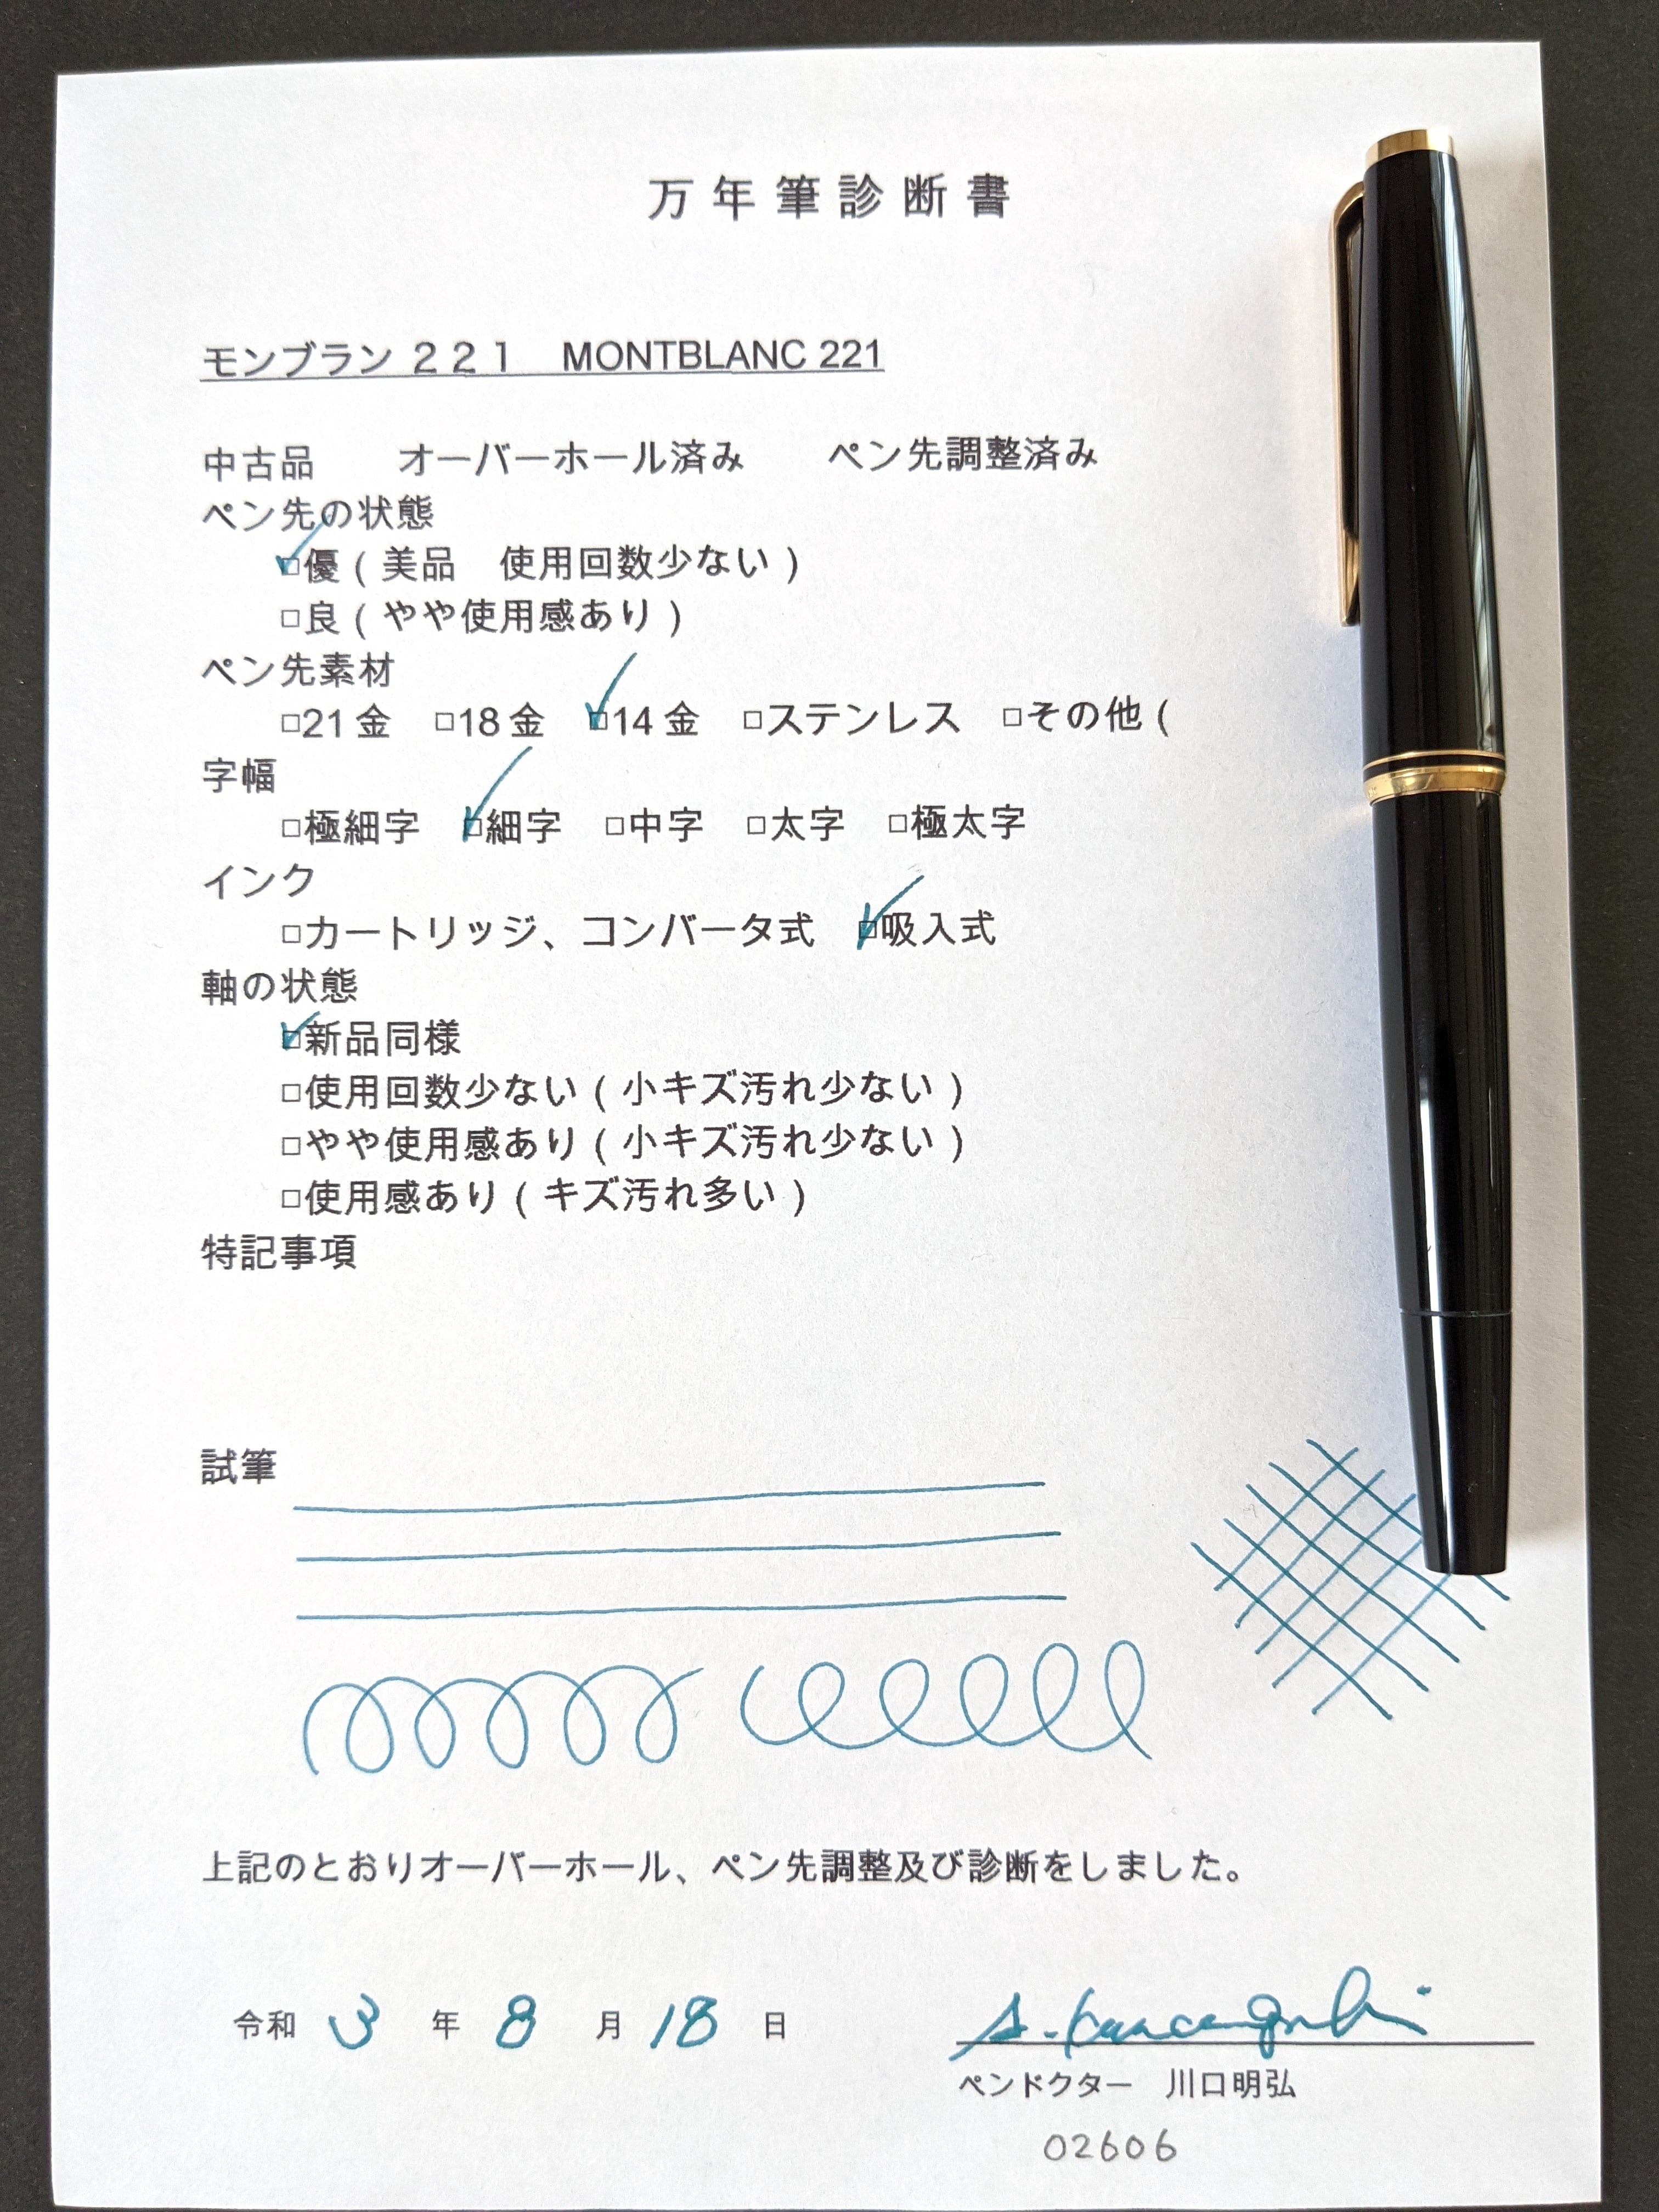 万年筆診断書
モンブラン２２１　MONTBLANC 221
中古品　オーバーホール済み　ペン先調整済み
ペン先の状態
□優（美品　使用回数少ない）
□良（やや使用感あり）
ペン先素材
□21金　□18金　□14金　□ステンレス　□その他（
字幅
□極細字　□細字　□中字　□太字　□極太字
インク
□カートリッジ、コンバータ式　□吸入式
軸の状態
□新品同様
□使用回数少ない（小キズ汚れ少ない）
□やや使用感あり（小キズ汚れ少ない）
□使用感あり（キズ汚れ多い）
特記事項
試筆
上記のとおりオーバーホール、ペン先調整及び診断をしました。
令和 3 年 8 月 18 日
ペンドクター　川口明弘
02606